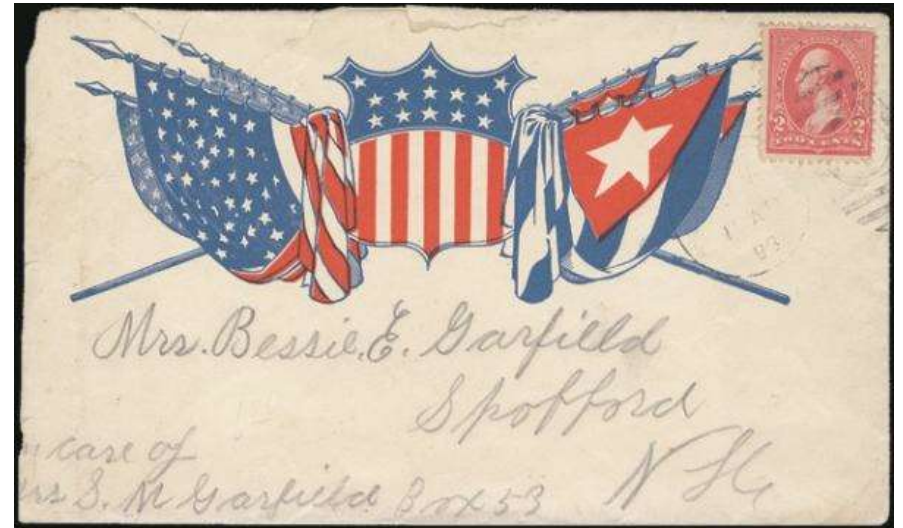 2 TWO CENTS 2
Mrs. Bessie. E. Garfield
Spofford
N H
care of
S. M Garfield Box 53